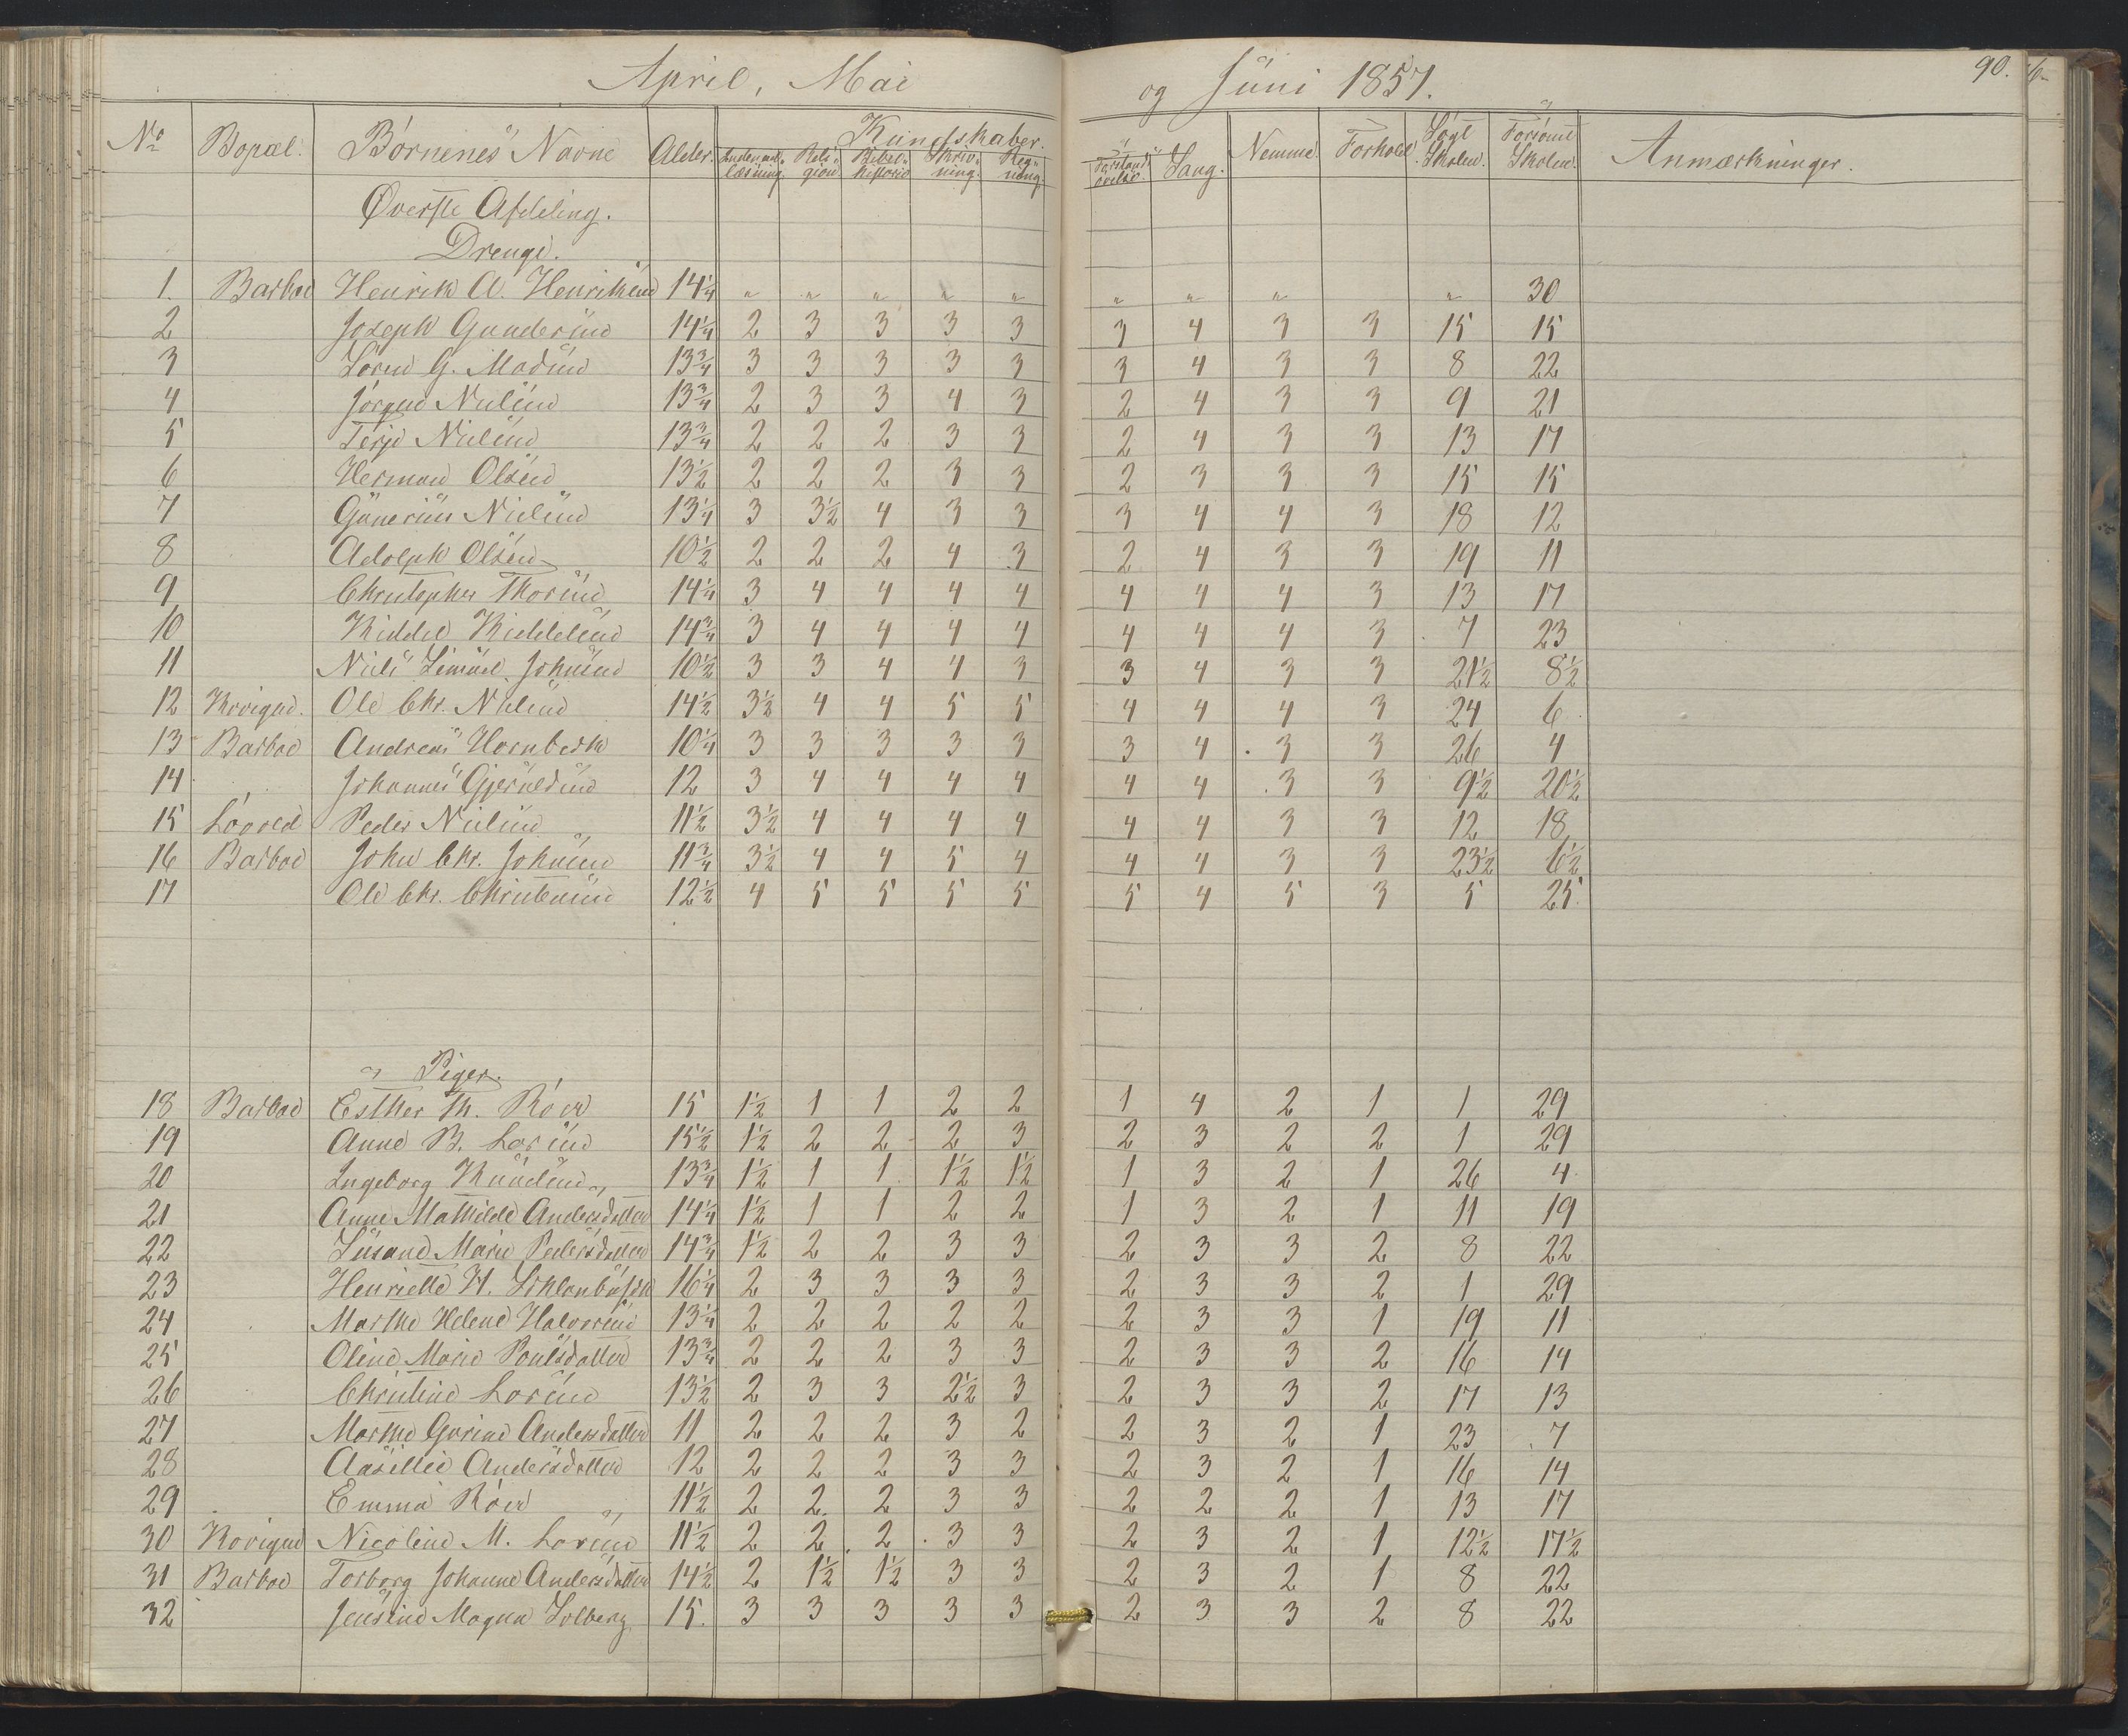 April, Mai og Juni 1857. 90.
No Bopæl. Börnenes Navne Alder. Kundskaber. Nemme. Forhold. Sögt Skolen. Forsömt Skolen. Anmærkninger.
Indenad-læsning. Reli-gion. Bibel-historie Skriv-ning. Reg-ning. Forstands-övelse. Sang.
Øverste Afdeling.
Drenge.
1. Barboe Henrik A. Henriksen 14 1/4 " " " " " " " " " 30
2 Joseph Gundersen 14 1/4 2 3 3 3 3 3 4 3 3 15 15
3 Sören G. Madsen 13 3/4 3 3 3 3 3 3 4 3 3 8 22
4 Jörgen Nielsen 13 3/4 2 3 3 4 3 2 4 3 3 9 21
5 Terje Nielsen 13 3/4 2 2 2 3 3 2 4 3 3 13 17
6 Herman Olsen 13 1/2 2 2 2 3 3 2 3 3 3 15 15
7 Gunerius Nielsen 13 1/4 3 3 1/2 4 3 3 3 4 4 3 18 12
8 Adolph Olsen 10 1/2 2 2 2 4 3 2 4 3 3 19 11
9 Christopher Thorsen 14 1/4 3 4 4 4 4 4 4 4 3 13 17
10 Kiddel Kiddelsen 14 3/4 3 4 4 4 4 4 4 4 3 7 23
11 Niels Simael Johnsen 10 1/2 3 3 4 4 3 3 4 3 3 21 1/2 8 1/2
12 Krøigned. Ole Chr. Nielsen 14 1/2 3 1/2 4 4 5 5 4 4 4 3 24 6
13 Barboe Andreas Hornbeck 10 1/4 3 3 3 3 3 3 4 3 3 26 4
14 Johannes Gjeruldsen 12 3 4 4 4 4 4 4 3 3 9 1/2 20 1/2
15 Peder Nielsen 11 1/2 3 1/2 4 4 4 4 4 4 3 3 12 18
16 Barboe John Chr. Johnsen 11 3/4 3 1/2 4 4 5 4 4 4 3 3 23 1/2 6 1/2
17 Ole Chr. Christensen 12 1/2 4 5 5 5 5 5 4 5 3 5 25
Piger.
18 Barboe Esther Th. Röer 15 1 1/2 1 1 2 2 1 4 2 1 1 29
19 Anne B. Larsen 15 1/2 1 1/2 2 2 2 3 2 3 2 2 1 29
20 Ingeborg Knudsen 13 3/4 1 1/2 1 1 1 1/2 1 1/2 1 3 2 1 26 4
21 Anne Mathilde Andersdatter 14 1/4 1 1/2 1 1 2 2 1 3 2 1 11 19
22 Susane Marie Pedersdatter 14 3/4 1 1/2 2 2 3 3 2 3 3 2 8 22
23 Henriette H. 16 1/4 2 3 3 3 3 2 3 3 2 1 29
24 Marthe Helene Halvorsen 13 1/4 2 2 2 2 2 2 3 3 1 19 11
25 Oline Marie Poulsdatter 13 3/4 2 2 2 3 3 2 3 3 2 16 14
26 Christine Larsen 13 1/2 2 3 3 2 1/2 3 2 3 3 2 17 13
27 Marthe Gurine Andersdatter 11 2 2 2 3 2 2 3 2 1 23 7
28 Aasillie Andersdatter 12 2 2 2 3 3 2 3 2 1 16 14
29 Emma Röer 11 1/2 2 2 2 3 3 2 2 2 1 13 17
30 Nicoline M. Larsen 11 1/2 2 2 2 3 3 2 3 2 1 12 1/2 17 1/2
31 Barboe Torborg Johanne Andersdatter 14 1/2 2 1 1/2 1 1/2 3 3 2 3 2 1 8 22
32 Jensine Magna Solberg 15. 3 3 3 3 3 2 3 3 2 8 22